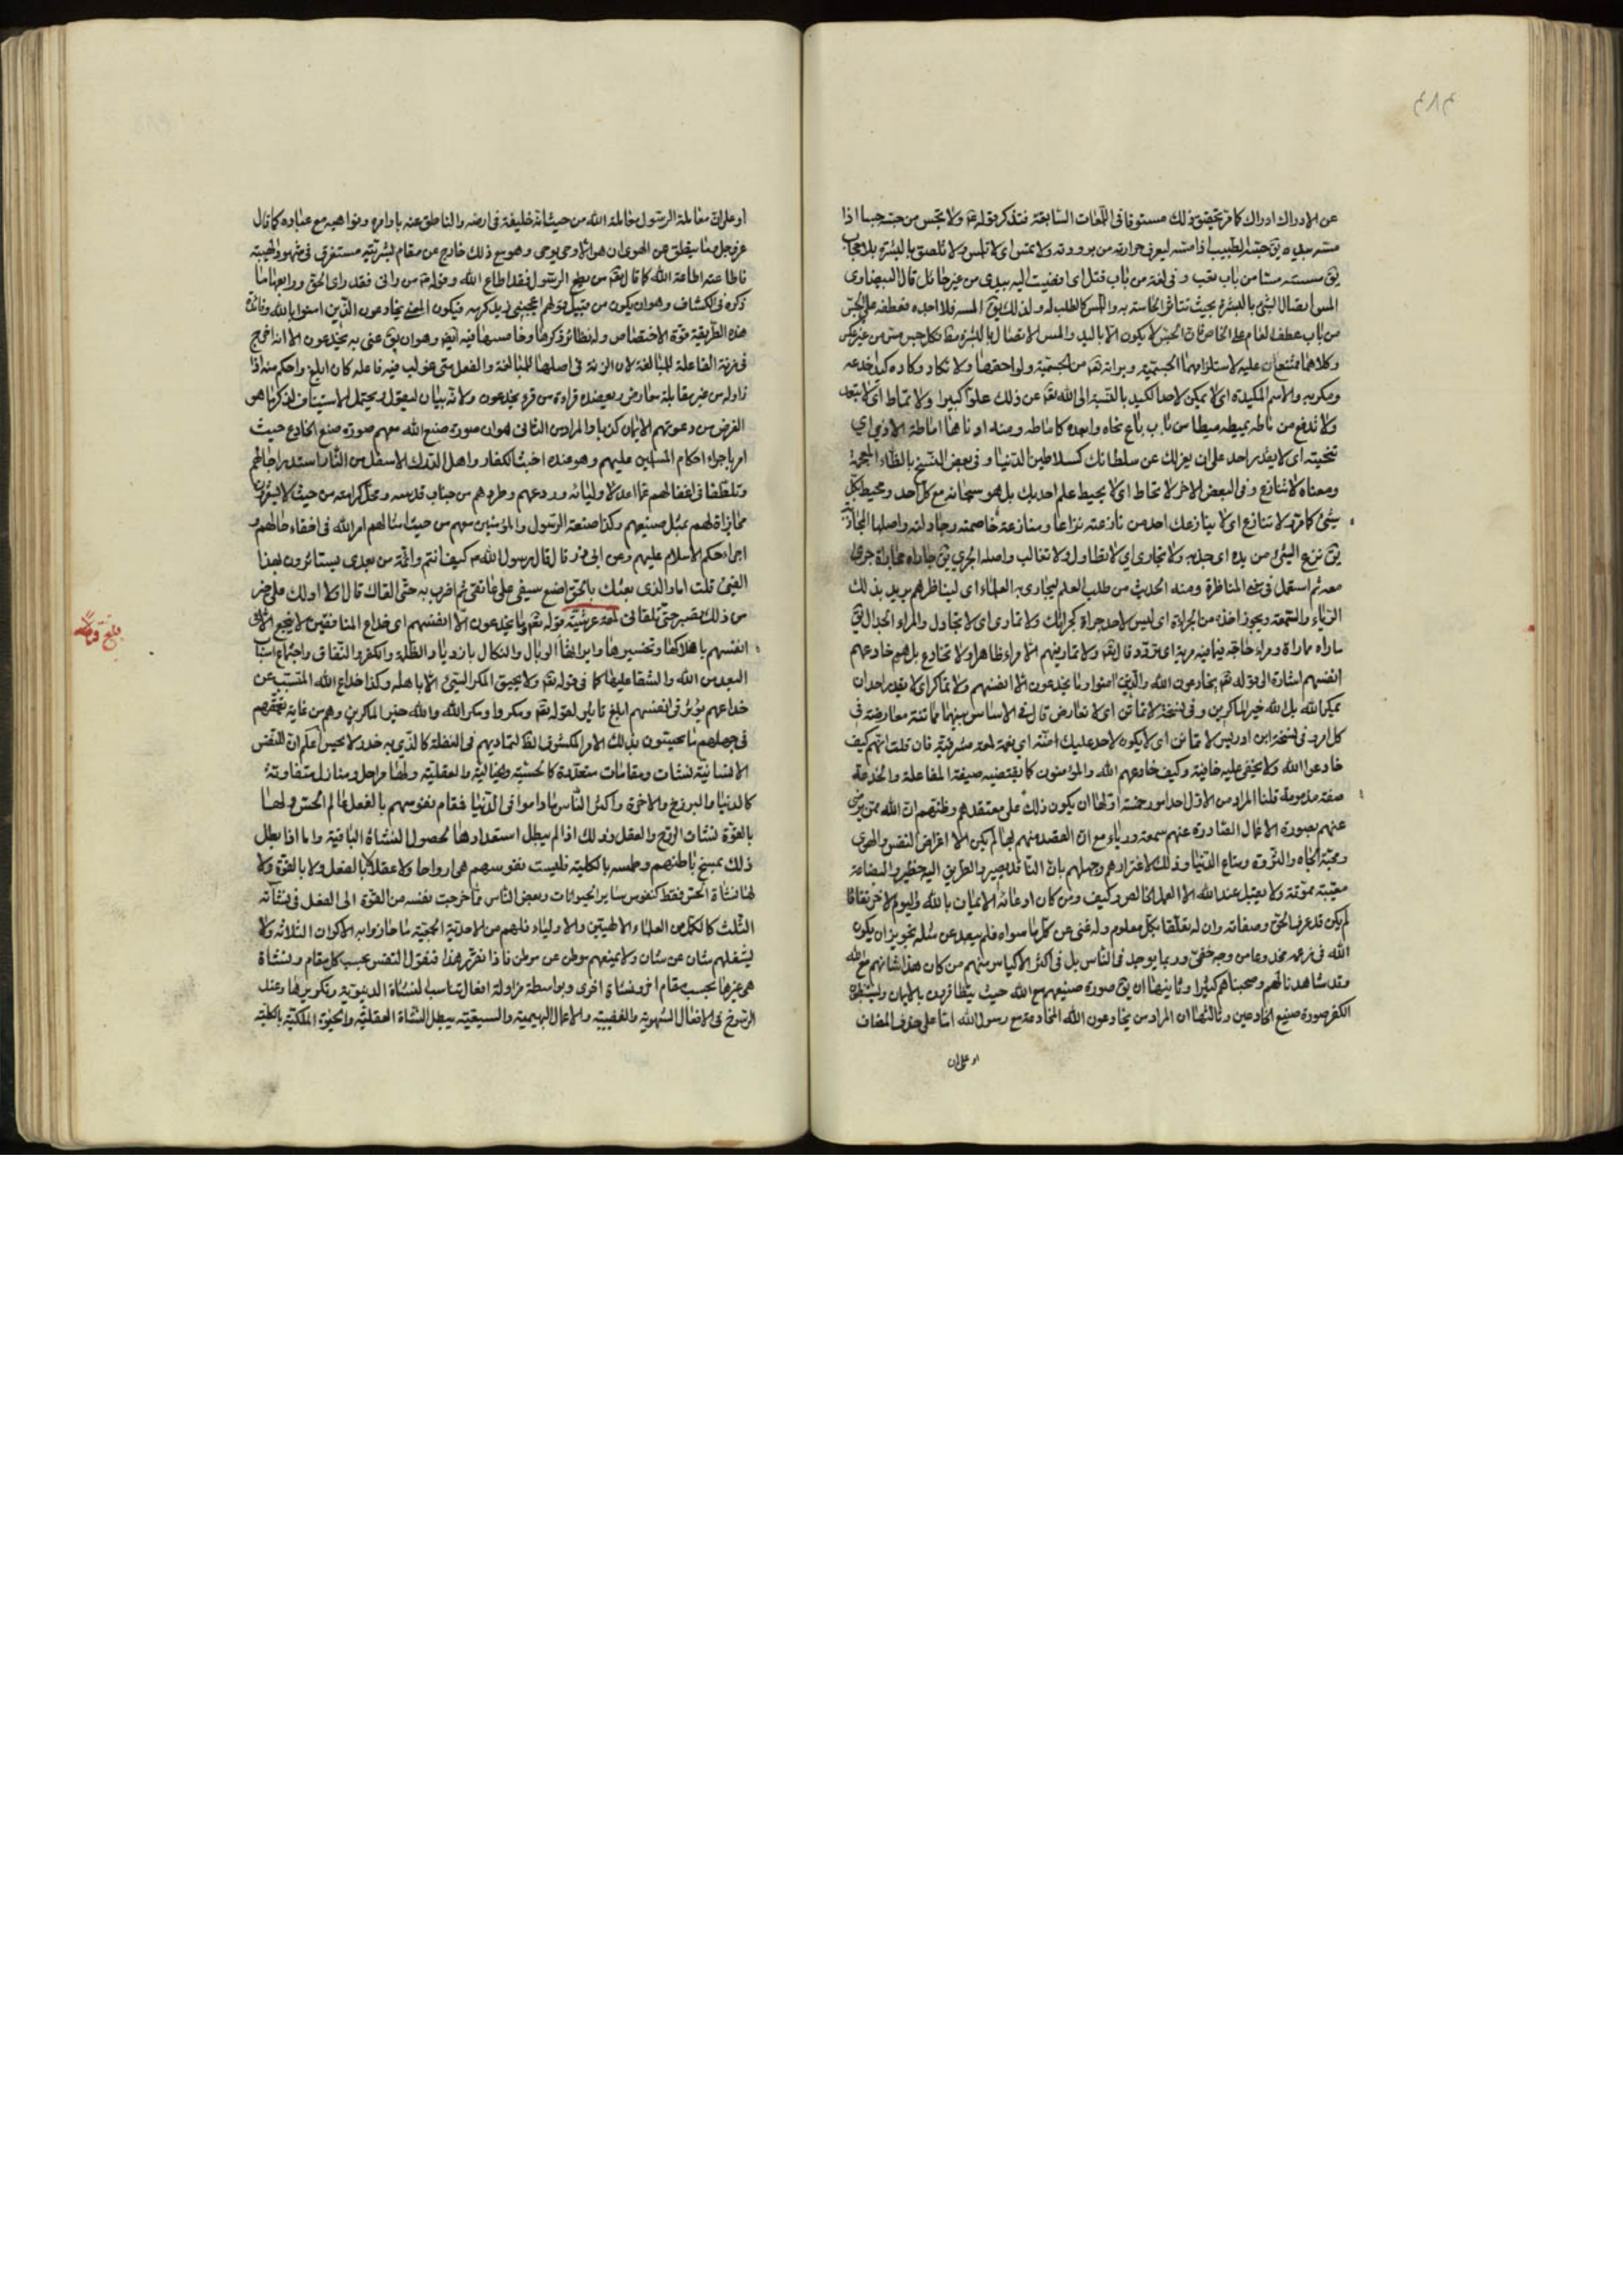 عن الادراك ادراك كما مر تحقيق ذلك مستوفا فى اللمعات السابقة فتذكر قوله ولا تحس من حسه حسا اذا
مسته بيده يق حسه الطبيب اذا مسه ليعرف حرارته من برودته ولا تمس اى لا تلمس ولا تلصق بالبشرة بلا حجاب
يق مسسته مسا من باب تعب و فى لغة من باب قتل اى افضيت اليه بيدى من غير حائل قال البيضاوى
المس ايصال الشئ بالبشرة بحيث تتاثر الحاسة به واللمس كالطلب له ولذلك يق المسه فلا اجده فعطفه على الحس
من باب عطف العام على الخاص فان الحس لا يكون الا باليد والمس الاتصال بالبشرة مطا فكل حس مس من غير عكس
وكلاهما ممتنعان عليه لاستلزامهما الجسمية وبراءته من الجسمية ولواحقها ولا تكاد وكاده كيدا خدعه
ومكر به والاسم المكيدة اى لا يمكن لاحد الكيد بالنسبة الى الله تعه عن ذلك علوا كبيرا ولا تماط اى لا تبعد
ولا تدفع من ماطه يميطه ميطا من باب باع نحاه وابعده كاماطه ومنه اوناهما اماطة الاذى اى
تنحيته اى لا يقدر احد على ان يعزلك عن سلطانك كسلاطين الدنيا و فى بعض النسخ بالظاء المعجمة
ومعناه لا تنازع و فى البعض الاخر لا تحاط اى لا يحيط علم احد بك بل هو سبحانه مع كل احد ومحيط بكل
شئ كما مر ولا تنازع اى لا ينازعك احد من نازعته نزاعا ومنازعة خاصمته وجادلته واصلها المجاذبة
يق نزع الشئ من يده اى جذبه ولا تجارى اى لا تطاول ولا تغالب واصله الجرى يق جاراه مجاراة جرى
معه ثم استعمل فى المناظرة ومنه الحديث من طلب العلم ليجارى به العلماء اى ليناظرهم يريد بذلك
الرياء والسمعة ويجوز اخذه من الجراءة اى ليس لاحد جراة كجرأتك ولا تمارى اى لا تجادل والمراء الجدال يق
ماراه مماراة ومراء حاجه فيما فيه مرية اى تردد قال تعه ولا تمار فيهم الا مراء ظاهرا ولا تخادع بل هم خادعهم
انفسهم اشارة الى قوله تعه يخادعون الله والذين امنوا وما يخدعون الا انفسهم ولا تماكر اى لا يقدر احد ان
يمكر الله بل الله خير الماكرين و فى نسخة لا تماتن اى لا تعارض قال فى الاساس بينهما مماتنة معارضة فى
كل امر و فى نسخة ابن ادريس لا تمانن اى لا يكون لاحد عليك امتنة اى نعمة لمعة مشرقية فان قلت انهم كيف
خادعوا الله ولا يخفى عليه خافية وكيف خادعهم الله والمؤمنون كما يقتضيه صيغة المفاعلة والخدعة
صفة مذمومة قلنا المراد من الاول احد امور خمسة اولها ان يكون ذلك على معتقدهم وظنهم ان الله ممن يرضى
عنهم بصورة الاعمال الصادرة عنهم سمعة ورياء مع ان القصد منهم بها لم يكن الا اغراض النفس والهوى
ومحبة الجاه والثروة ومتاع الدنيا وذلك لاغترارهم وجهلهم بان الناقد بصير والطريق اليه خطير والبضاعة
معيبة مموقة ولا يقبل عند الله الا العمل الخالص وكيف ومن كان ادعائه الايمان بالله واليوم الاخر نفاقا
لم يكن قد عرف الحق وصفاته وان له تعلقا بكل معلوم وله غنى عن كل ما سواه فلم يبعد عن مثله تجويز ان يكون
الله فى زعمه مخدوعا من وجه خفى وربما يوجد فى الناس بل فى اكثر الاكياس منهم من كان هذا شانهم مع الله
وقد شاهدناهم وصحبناهم كثيرا وثانيها ان يق صورة صنيعهم مع الله حيث يتظاهرون بالايمان ويستبطنون
الكفر صورة صنيع الخادعين وثالثها ان المراد من يخادعون الله المخادعة مع رسول الله اما على حذف المضاف
او على ان
او على ان معاملة الرسول معاملة الله من حيث انه خليفة فى ارضه والناطق عنه باوامره ونواهيه مع عباده كما قال
عز وجل وما ينطق عن الهوى ان هو الا وحى يوحى وهو مع ذلك خارج من مقام بشريته مستغرق فى شهود الهيبة
فاطاعته اطاعة الله كما قال تعه من يطع الرسول فقد اطاع الله وقوله من رانى فقد راى الحق ورابعها ما
ذكره فى الكشاف وهو ان يكون من قبيل قولهم اعجبنى زيد كرمه فيكون المعنى يخادعون الذين امنوا بالله وفائدة
هذه الطريقة قوة الاختصاص وله نظائر ذكرها وخامسها فيه ايضا وهو ان يق عنى به يخدعون الا انه اخرج
فى زنة الفاعلة للمبالغة لان الزنة فى اصلها للمبالغة والفعل متى غولب فيه فاعله كان ابلغ واحكم منه اذا
زاوله من غير مقابلة معارض ويعضده قراءة من قرء يخدعون ولانه بيان ليقول ويحتمل الاستيناف لذكر ما هو
الغرض من دعوتهم الايمان كذبا والمراد من الثانى هو ان صورة صنع الله معهم صورة صنع الخادع حيث
امر باجراء احكام المسلمين عليهم وهو عنده اخبث الكفار واهل الدرك الاسفل من النار استدراجا لهم
وتلطفا فى اغفالهم عما اعد لاوليائه وردعهم وطردهم من جناب قدسه ومحل كرامته من حيث لا يشعرون
مجازاة لهم بمثل صنيعهم وكذا صنعة الرسول والمؤمنين معهم من حيث امتثالهم امر الله فى اخفاء حالهم و
اجراء حكم الاسلام عليهم وعن ابى ذر قال قال رسول الله كيف انتم وائمة من بعدى يستاثرون بهذا
الفئ قلت اما والذى بعثك بالحق اضع سيفى على عاتقى ثم اضرب به حتى القاك قال اولا ادلك على خير
من ذلك تصبر حتى تلقانى لمعة عرشية قوله تعه وما يخدعون الا انفسهم اى خداع المنافقين لا يرجع الا الى
انفسهم باهلاكها وتخسيرها وايراثها الوبال والنكال بازدياد الظلمة والكفر والنفاق واجتماع اسباب
البعد من الله والشقا عليها كما فى قوله تعه ولا يحيق المكر السيئ الا باهله وكذا خداع الله المتسبب عن
خداعهم يؤثر فى انفسهم ابلغ تاثير لقوله تعه ومكروا ومكر الله والله خير الماكرين وهم من غاية تعمقهم
فى جهلهم ما يحسون بذلك الامر المكشوف لظاتماديهم فى الغفلة كالذى به خدر لا يحس اعلم ان للنفس
الانسانية نشات ومقامات متعددة كالحسية والخيالية والعقلية ولها مراحل ومنازل متفاوتة
كالدنيا والبرزخ والاخرة واكثر الناس ما داموا فى الدنيا فقام نفوسهم بالفعل عالم الحس ولها
بالقوة نشات الروح والعقل وذلك اذا لم يبطل استعدادها لحصول النشاة الباقية واما اذا بطل
ذلك بمسخ باطنهم وطمسه بالكلية فليست نفوسهم هى ارواحا ولا عقلا لا بالفعل ولا بالقوة ولا
لها نشاة الحس فقط كنفوس ساير الحيوانات وبعض الناس مما خرجت نفسه من القوة الى الفعل فى نشآته
الثلث كالكمل من العلماء الالهيين والاولياء فلهم من الاحدية الجمعية ما حازوا به الاكوان الثلاثة ولا
يشغلهم شان عن شان ولا يمنعهم موطن عن موطن فاذا تقرر هذا فنقول النفس بحسب كل مقام ونشاة
هى غيرها بحسب مقام اخر ونشاة اخرى وبواسطة مزاولة افعال تناسب لنشاة الدنيوية وتكريرها وعند
الرسوخ فى الافعال الشهوية والغضبية والاعمال البهيمية والسبعية يبطل النشاة العقلية والحيوة الملكية بالكلية